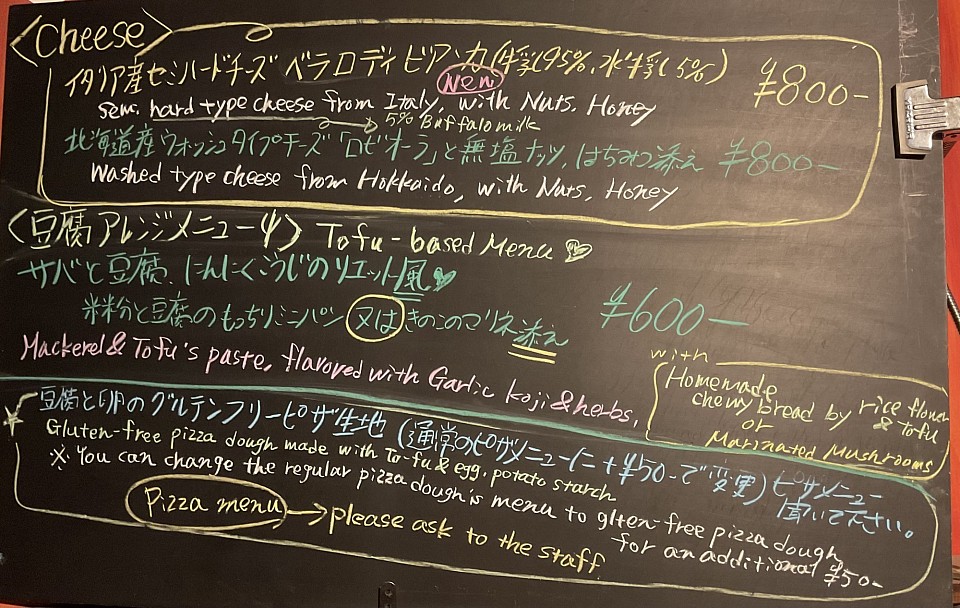 <Cheese>
イタリア産セミハードチーズ ベラロディ ビアンカ(牛乳95%、水牛乳5%) ¥800-
New
Semi. hard type cheese from Italy, with Nuts, Honey
5% Buffalo milk
北海道産ウォッシュタイプチーズ「ロビオーラ」と無塩ナッツ、はちみつ添え ¥800-
Washed type cheese from Hokkaido, with Nuts, Honey
<豆腐アレンジメニュー> Tofu-based Menu
サバと豆腐、にんにくこうじのリエット風
米粉と豆腐のもっちりミニパン 又は きのこのマリネ添え ¥600-
Mackerel & Tofu's paste, flavored with Garlic koji & herbs,
with
Homemade
chewy bread by rice flower & tofu
or
Marinated Mushrooms
豆腐と卵のグルテンフリーピザ生地 (通常のピザメニューに+¥50-で変更) ピザメニュー聞いて下さい。
Gluten-free pizza dough made with To-fu & egg, potato starch
※You can change the regular pizza dough is menu to glten-free pizza dough
for an additional ¥50-
Pizza menu → please ask to the staff